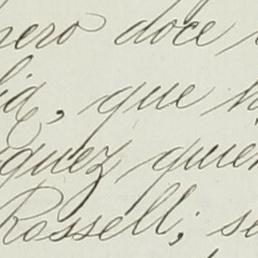 mero doce
que
quez quien
Rossell; se